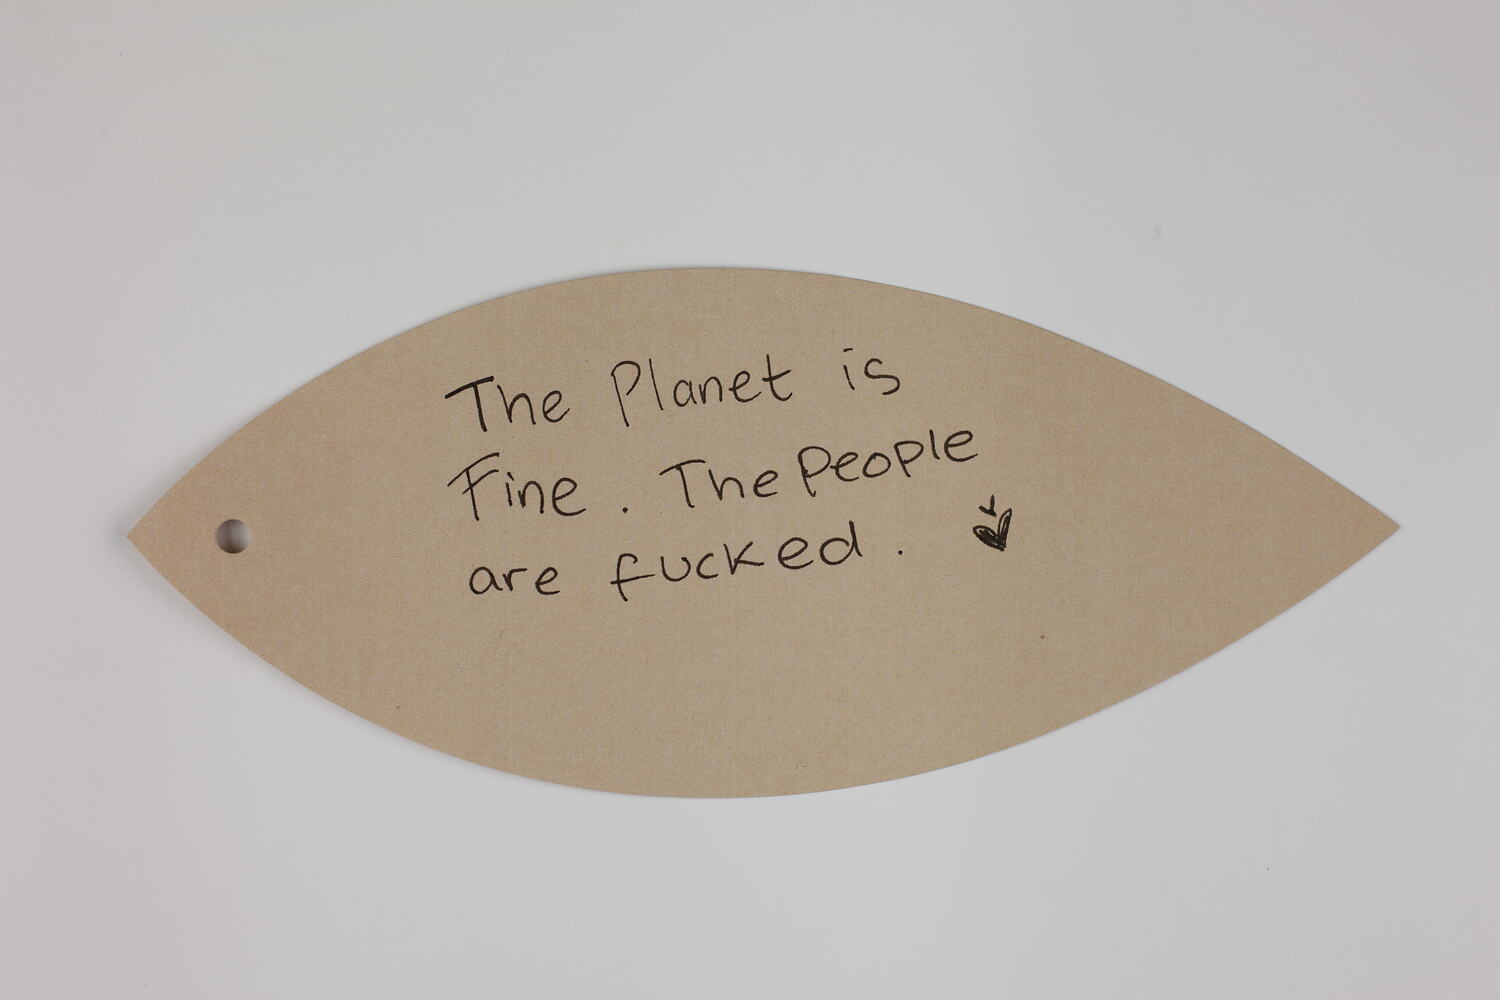 The Planet is
Fine. The People
are fucked.